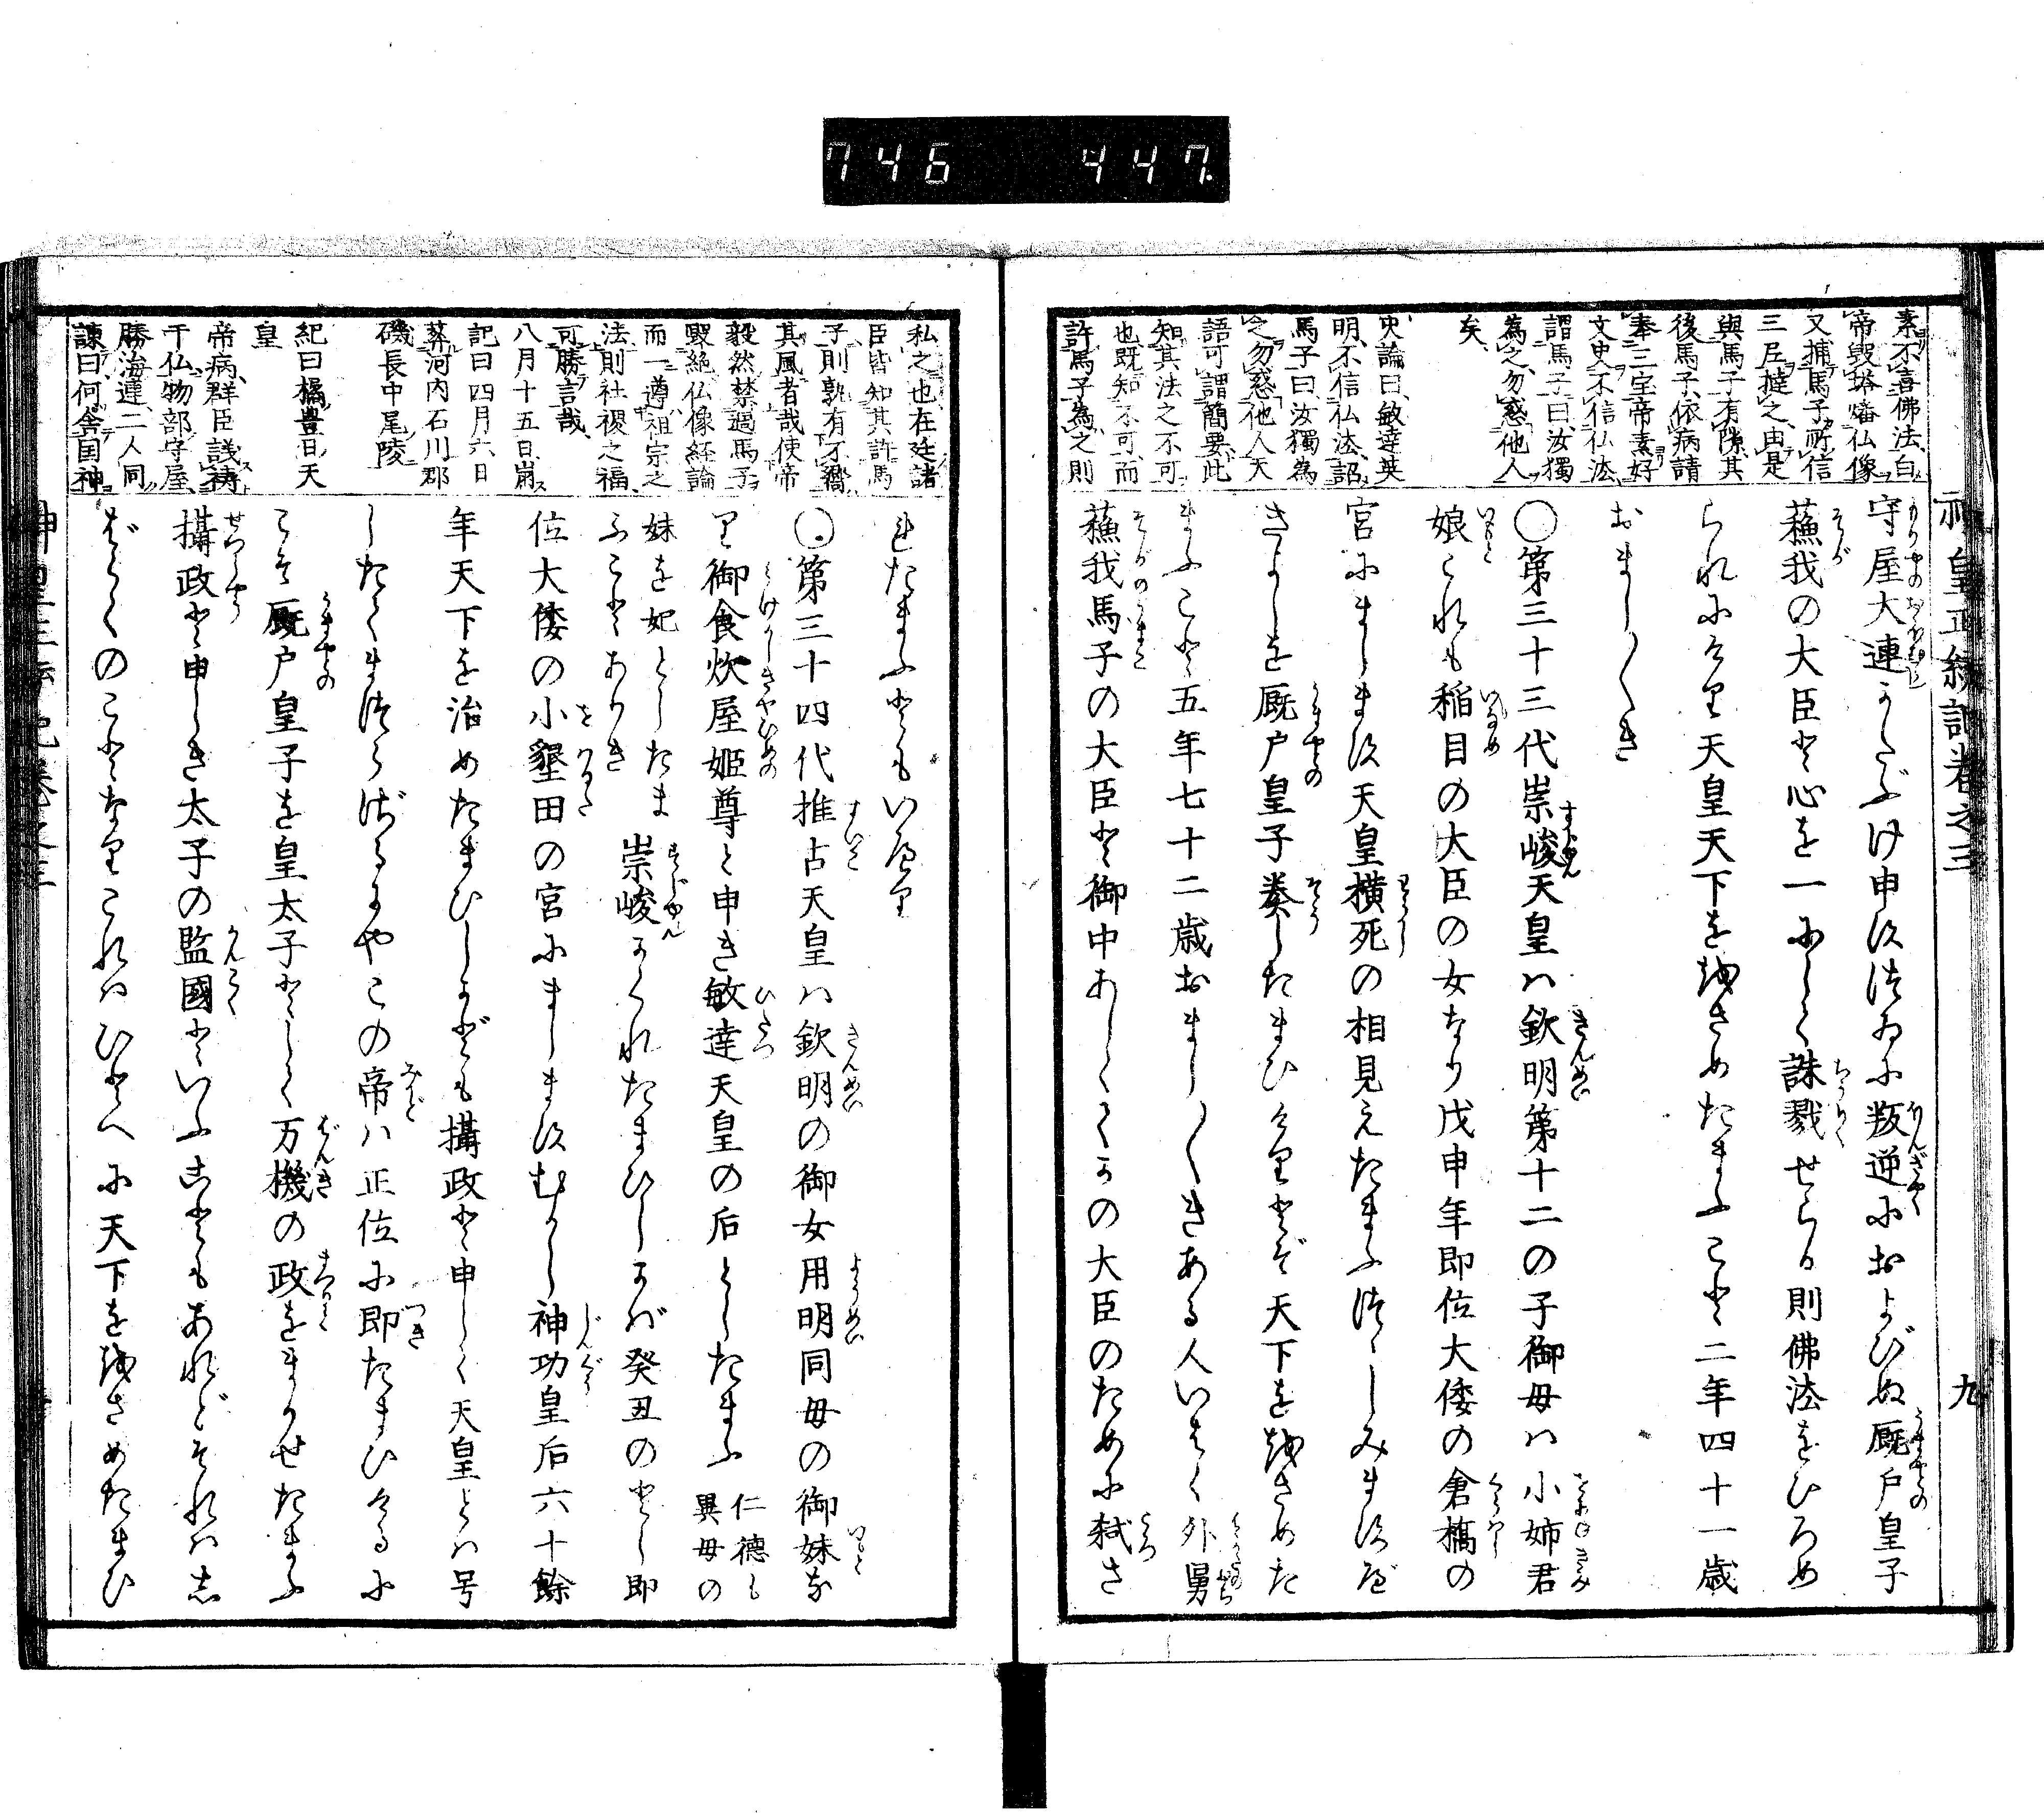 746 447.
神皇正統記巻之三
九
素不喜佛法、白
帝毀塔燔仏像
又捕馬子所信
三尼撻之、由是
與馬子有隙、其
後馬子依病請
奉三宝帝素好
文史不信仏法
謂馬子曰、汝獨
為之、勿惑他人
矣、
史論曰、敏達英
明、不信仏法、詔
馬子曰汝獨為
之勿惑他人天
語可謂簡要、此
知其法之不可
也、既知不可、而
許馬子為之則
守屋大連かたぶけ申須徒ゐに叛逆におよびぬ厩戸皇子
蘓我の大臣と心を一にして誅戮せらる則佛法をひろめ
られにけり天皇天下を越さめたまふこと二年四十一歳
おまし〱き
〇第三十三代崇峻天皇ハ欽明第十二の子御母ハ小姉君
娘これも稲目の大臣の女なり戊申年即位大倭の倉橋の
宮にましま須天皇横死の相見えたまふ徒ゝしみま須べ
きよしを厩戸皇子奏したまひけりとぞ天下を越さめた
まふこと五年七十二歳おまし〱きある人いはく外舅
蘓我馬子の大臣と御中あしくてかの大臣のために弑さ
私之也在廷諸
臣皆知其許馬
子、則孰有不嚮
其風者哉使帝
毅然禁遏馬子
毀絶仏像経論
而一遵祖宗之
法、則社稷之福、
可勝言哉、
八月十五日、崩
記曰四月六日
葬河内石川郡
磯長中尾陵
紀曰橘豊日天
皇
帝病、群臣議祷
于仏物部守屋、
勝海連、二人同
諫曰、何舎国神
れたまふともいへり
〇第三十四代推古天皇ハ欽明の御女用明同母の御妹な
り御食炊屋姫尊と申き敏達天皇の后としたまふ 仁德も異母の
妹を妃としたまふことありき 崇峻かくれたまひしかば癸丑のとし即
位大倭の小墾田の宮にましま須むかし神功皇后六十餘
年天下を治めたまひしかども攝政と申して天皇とハ号
したてま徒らざるにやこの帝ハ正位に即たまひけるに
こそ厩戸皇子を皇太子として万機の政をまかせたまふ
攝政と申しき太子の監國といふことも あれどそれハ志
ばらくのことなりこれハひとへに天下を越さめたまひ